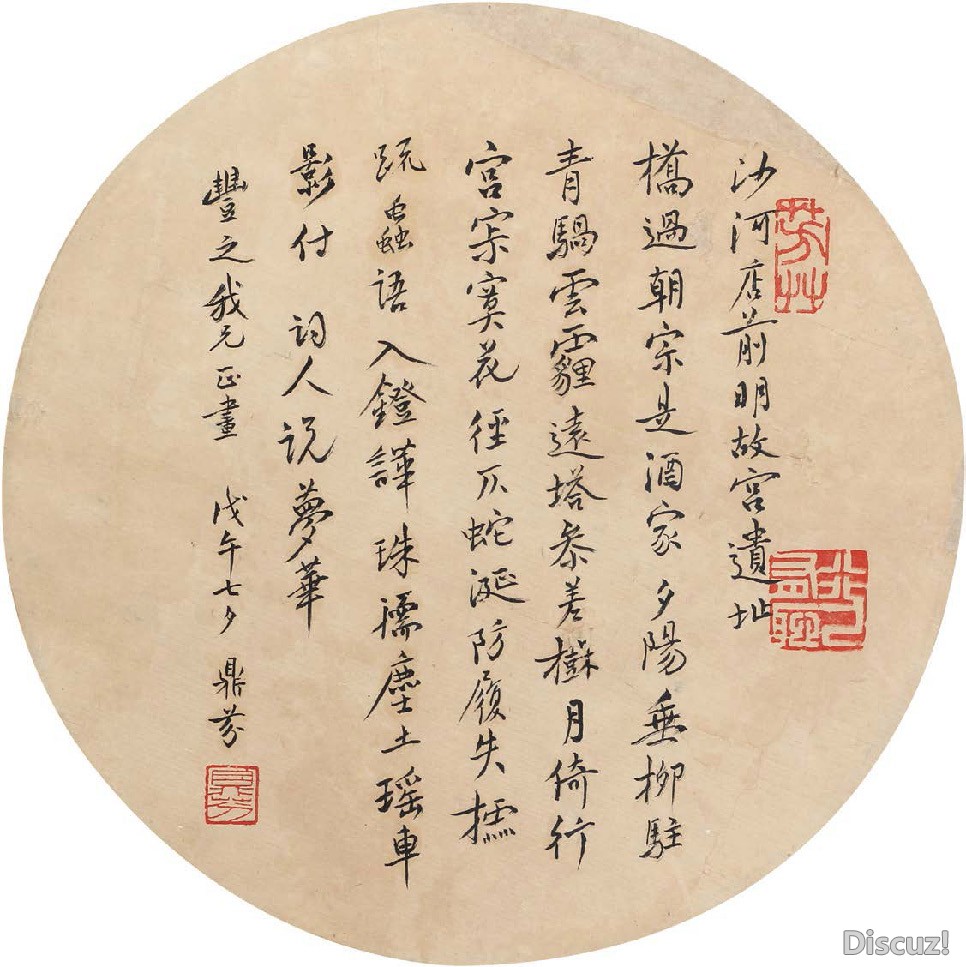 沙河店前明故宮遺址
橋過朝宗是酒家夕陽垂柳駐
青騧雲霾遠塔參差樹月倚行
宮寂寞花徑仄蛇涎防履失櫺
疏蟲語入鐙譁珠襦塵土瑤車
影付詞人說夢華
豐之我兄正畫 戊午七夕 鼎芬
芳草
鼎芬
Discuz!